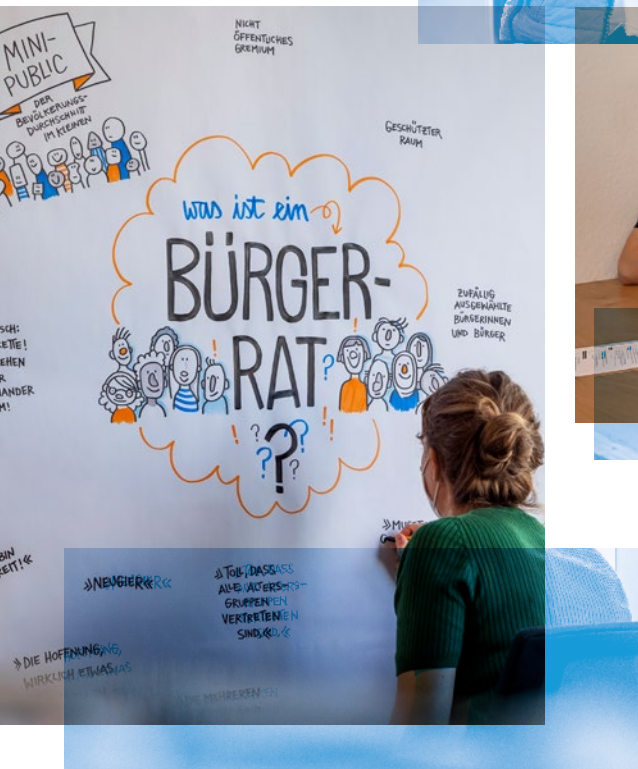 MINI-
PUBLIC
DER
BEVÖLKERUNGS-
DURCHSCHNITT
IM KLEINEN
NICHT
ÖFFENTLICHES
GREMIUM
GESCHÜTZTER
RAUM
was ist ein
BÜRGER-
RAT
?
ZUFÄLLIG
AUSGEWÄHLTE
BÜRGERINNEN
UND BÜRGER
»NEUGIER«
»TOLL, DASS
ALLE ALTERS-
GRUPPEN
VERTRETEN
SIND,«
»DIE HOFFNUNG,
WIRKLICH ETWAS